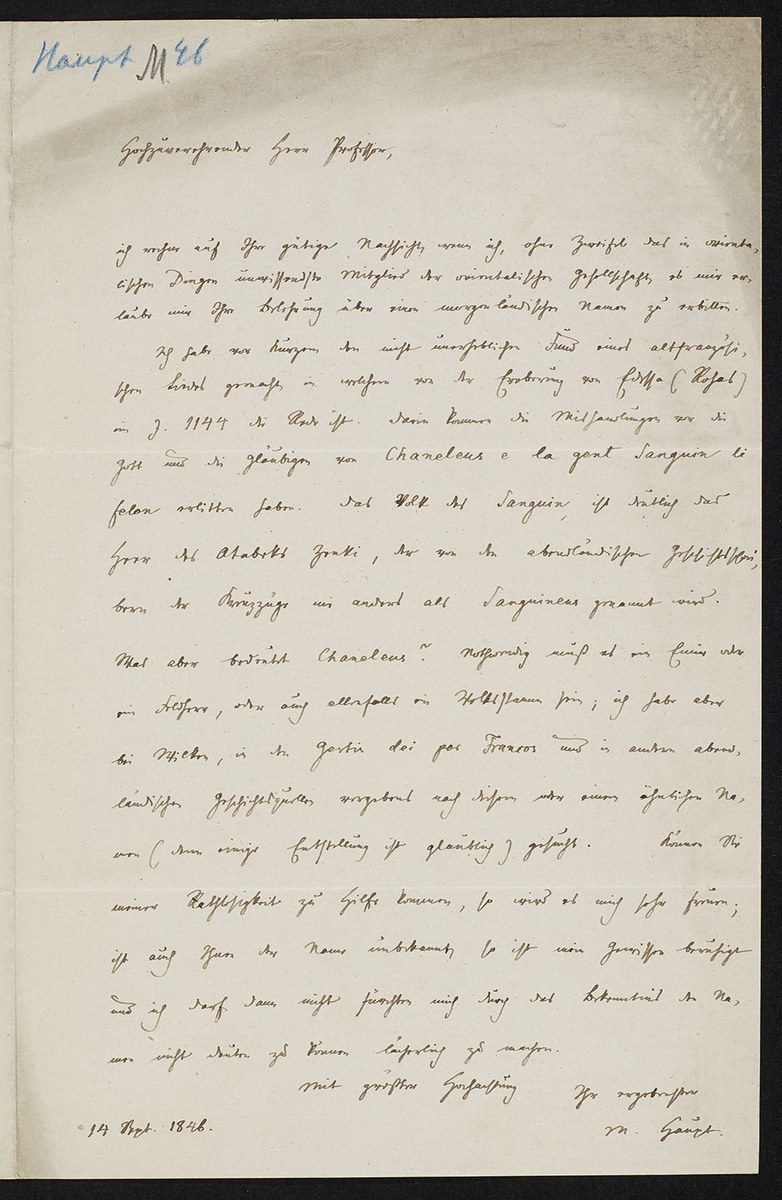 Haupt M 46
Hochzuverehrender Herr Professor,
ich rechne auf Ihre gütige Nachsicht, wenn ich, ohne Zweifel das in orienta-
lischen Dingen unwissendste Mitglied der orientalischen Gesellschaft, es mir er-
laube mir Ihre Belehrung über einen morgenländischen Namen zu erbitten.
Ich habe vor Kurzem den nicht unerheblichen Fund eines altfranzösi-
schen Liedes gemacht, in welchem von der Eroberung von Edessa (Rohas)
im J. 1144 die Rede ist. Darin kommen die Mishandlungen vor die
Gott und die Gläubigen von Chaneleus e la gent Sanguin li
felon erlitten haben. Das Volk des Sanguin, ist deutlich das
Heer des Atabeks Zenki, der von den abendländischen Geschichtschrei-
bern der Kreuzzüge nie anders als Sanguineus genannt wird.
Was aber bedeutet Chaneleus? Nothwendig muß es ein Emir oder
ein Feldherr, oder auch allenfalls ein Volksstamm sein; ich habe aber
bei Wilken, in den Gestis dei per Francos und in andern abend-
ländischen Geschichtsquellen vergebens nach diesem oder einem ähnlichen Na-
men (denn einige Entstellung ist glaublich) gesucht. Können Sie
meiner Rathlosigkeit zu Hilfe kommen, so wird es mich sehr freuen;
ist auch Ihnen der Name unbekannt, so ist mein Gewissen beruhigt
und ich darf dann nicht fürchten mich durch das Bekenntnis den Na-
men nicht deuten zu können lächerlich zu machen.
Mit größter Hochachtung Ihr ergebenster
14 Sept. 1846. M. Haupt.